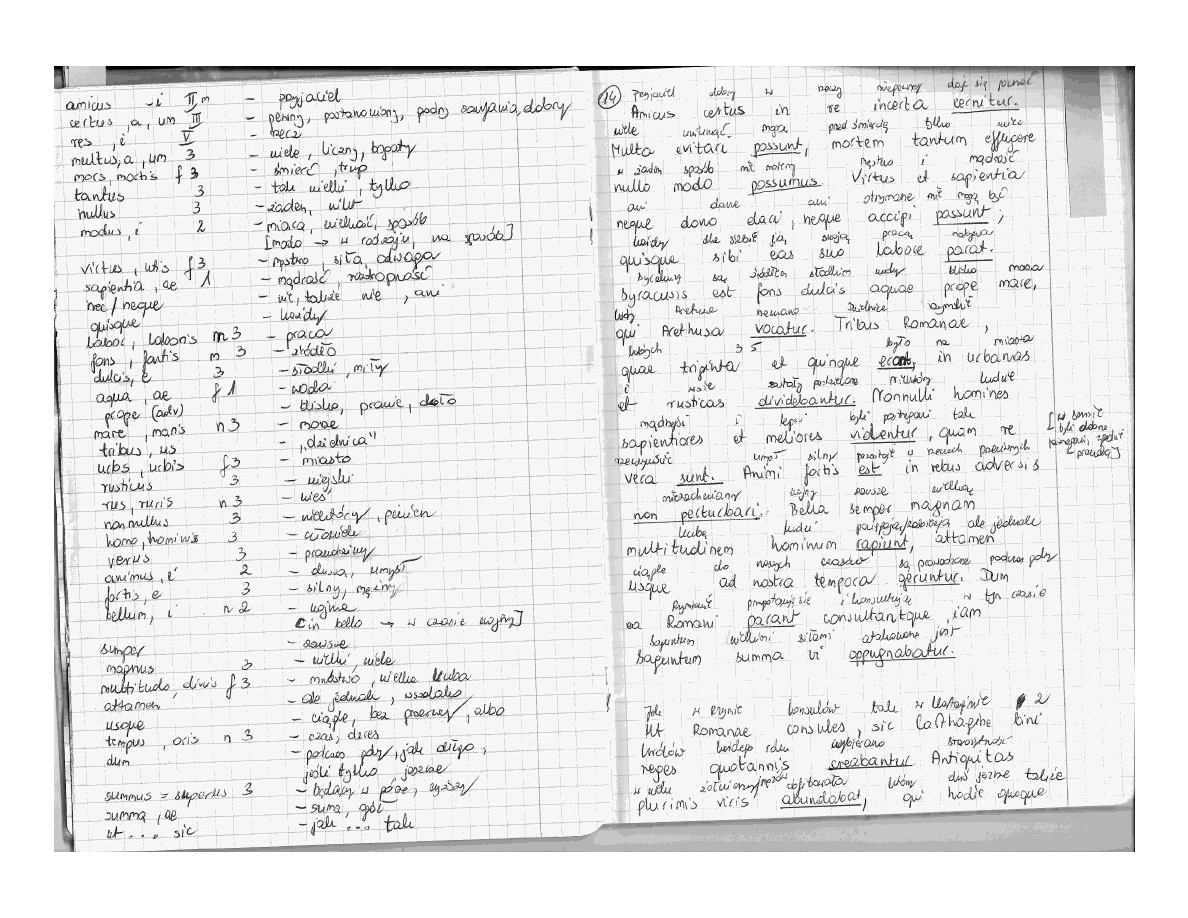 amicus -i II m - przyjaciel
certus, a, um III - pewny, postanowiony, godny zaufania, dobry
res, i V - rzecz
multus, a, um 3 - wiele, liczny, bogaty
mors, mortis f 3 - śmierć, trup
tantus 3 - tak wielki, tylko
nullus 3 - żaden, nikt
modus, i 2 - miara, wielkość, sposób
[modo → w rodzaju, na sposób]
virtus, utis f 3 - męstwo, siła, odwaga
sapientia, ae f 1 - mądrość, roztropność
nec / neque - nie, także nie, ani
quisque - każdy
labor, laboris m 3 - praca
fons, fontis m 3 - źródło
dulcis, e 3 - słodki, miły
aqua, ae f 1 - woda
prope (adv) - blisko, prawie, około
mare, maris n 3 - morze
tribus, us - "dzielnica"
urbs, urbis f 3 - miasto
rusticus 3 - wiejski
rus, ruris n 3 - wieś
nonnullus 3 - niektóry, pewien
homo, hominis 3 - człowiek
verus 3 - prawdziwy
animus, i 2 - dusza, umysł
fortis, e 3 - silny, mężny
bellum, i n 2 - wojna
[in bello → w czasie wojny]
semper - zawsze
magnus 3 - wielki, wiele
multitudo, dinis f 3 - mnóstwo, wielka liczba
attamen - ale jednak, wszelako
usque - ciągle, bez przerwy, albo
tempus, oris n 3 - czas, okres
dum - podczas gdy, jak długo,
jeśli tylko, jeszcze
summus = superus 3 - będący w górze, wyższy
summa, ae - suma, gół
ut ... sic - jak ... tak
14 Przyjaciel dobry w rzeczy niepewnej daje się poznać
Amicus certus in re incerta cernitur.
wiele uniknąć mogą przed śmiercią tylko uciec
Multa evitari possunt, mortem tantum effugere
w żaden sposób nie możemy męstwo i mądrość
nullo modo possumus. Virtus et sapientia
ani dane ani otrzymane nie mogą być
neque dono dari, neque accipi possunt,
każdy dla siebie ją swoją pracą nabywa
quisque sibi eas suo labore parat.
Syrakuzy są źródłem słodkim wody blisko morza
Syracusis est fons dulcis aquae prope mare,
który Aretuza nazwano Dzielnice rzymskie
qui Arethusa vocatur. Tribus Romanae,
których 35 było na miasta
quae triginta et quinque erant, in urbanas
i wsie zostały podzielone niektórzy ludzie
et rusticas dividebantur. Nonnulli homines
mądrzejsi i lepsi byli postrzegani tak
sapientiores et meliores videntur, quam re
rzeczywiście umysł silny pozostaje w rzeczach przeciwnych
vera sunt. Animi fortis est in rebus adversis
niezachwiany wojny zawsze wielką
non perturbari. Bella semper magnam
liczbę ludzi porywają/zabierają ale jednak
multitudinem hominum rapiunt, attamen
ciągle do naszych czasów są prowadzone podczas gdy
usque ad nostra tempora geruntur. Dum
Rzymianie przygotowują się i konsultują w tym czasie
ea Romani parant consultantque, iam
Saguntum wielkimi siłami atakowane jest
Saguntum summa vi oppugnabatur.
Jak w Rzymie konsulów tak w Kartaginie 2
Ut Romanae consules, sic Carthagine bini
królów każdego roku wybierano starożytność
reges quotannis creabantur. Antiquitas
w wielu obfitowała którzy dziś jeszcze także
plurimis viris abundabat, qui hodie quoque